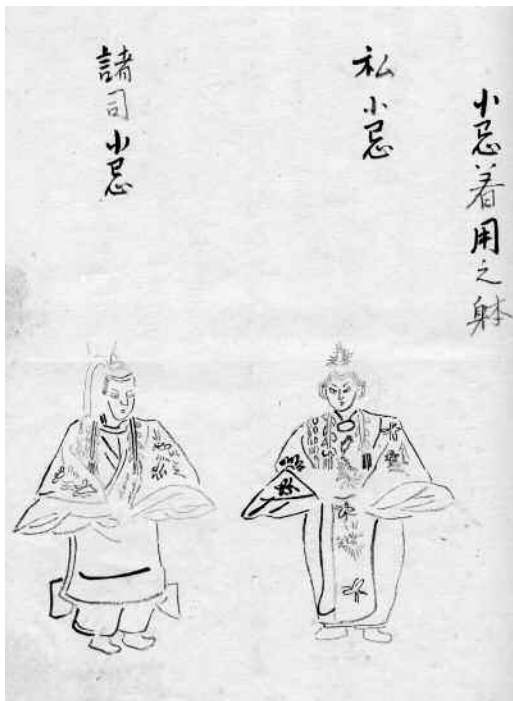 小忌着用之躰
私小忌
諸司小忌